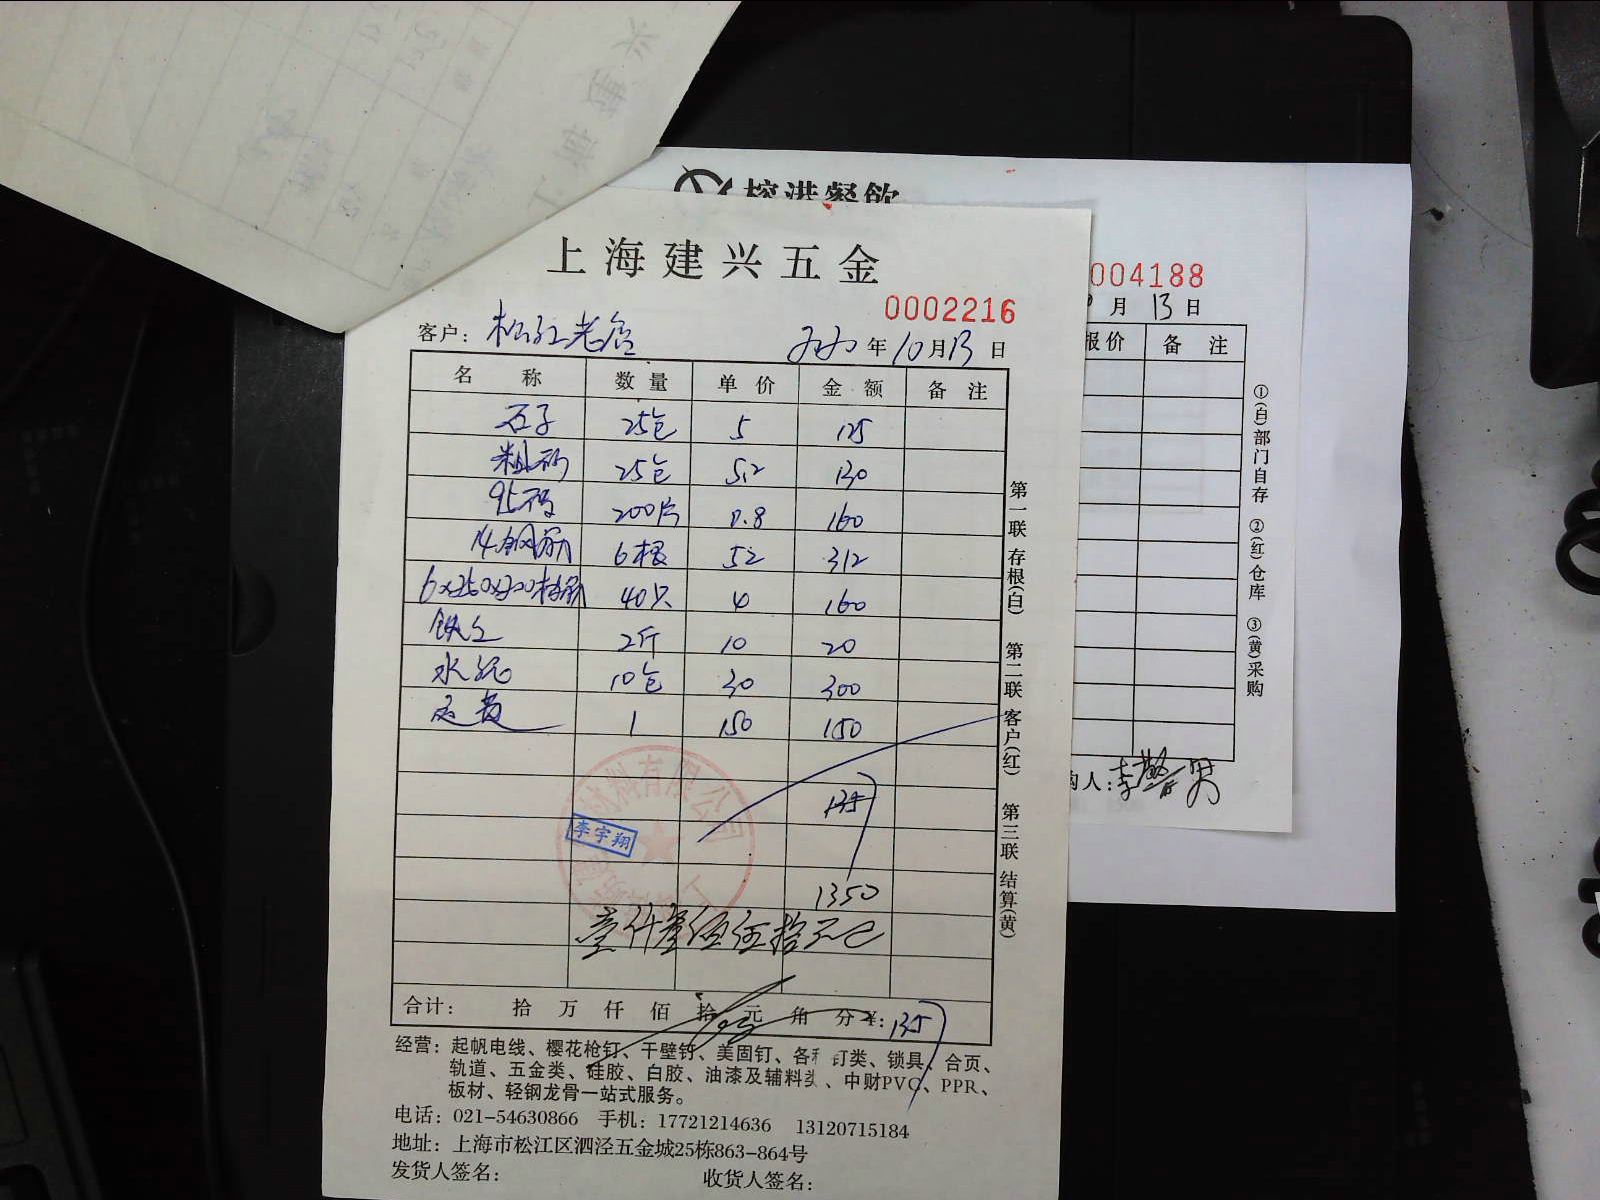 榕港餐飲
上海建兴五金
004188
0002216
月 13 日
客户: 松江老店 2020 年 10 月 13 日
报价 备 注
名 称 数 量 单 价 金 额 备 注
石子 25包 5 125
粗砂 25包 5.2 130
200片 0.8 160
14钢筋 6根 52 312
40只 4 160
2斤 10 20
水泥 10包 30 300
运费 1 150 150
1350
壹仟叁佰伍拾元
李宇翔
材料有限公司
合计: 拾 万 仟 佰 拾 元 角 分 ¥:
第一联 存根(白) 第二联 客户(红) 第三联 结算(黄)
①(白)部门自存 ②(红)仓库 ③(黄)采购
购人:李
经营: 起帆电线、樱花枪钉、干壁钉、美固钉、各种钉类、锁具、合页、
轨道、五金类、硅胶、白胶、油漆及辅料类、中财PVC、PPR、
板材、轻钢龙骨一站式服务。
电话: 021-54630866 手机: 17721214636 13120715184
地址: 上海市松江区泗泾五金城25栋863-864号
发货人签名: 收货人签名: